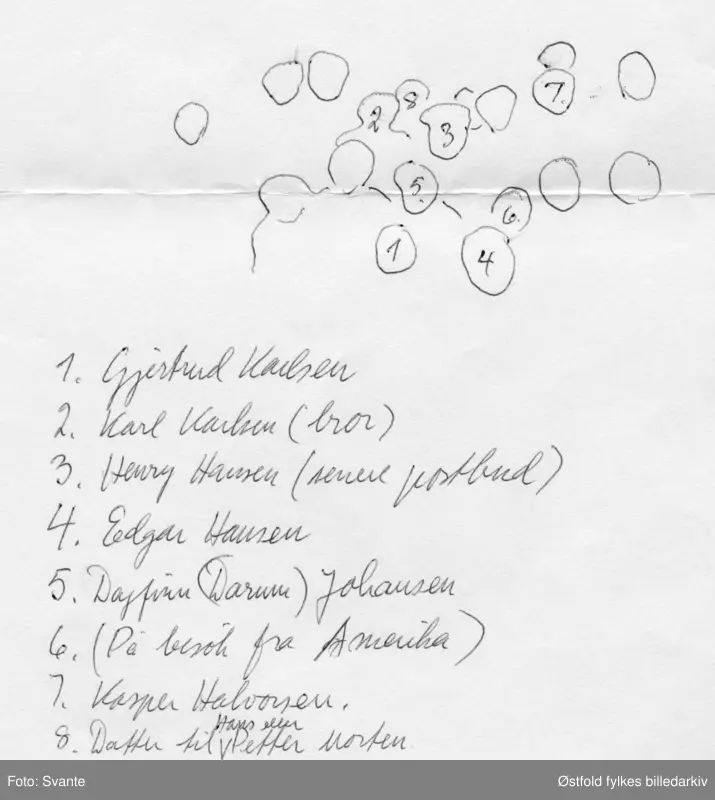 8
7.
2
3
5.
6.
1
4
1. Gjertrud Karlsen
2. Karl Karlsen (bror)
3. Henry Hansen (senere postbud)
4. Edgar Hansen
5. Dagfinn (Darum) Johansen
6. (På besök fra Amerika)
7. Kasper Halvorsen.
Hans eller
8. Datter til Petter Morten
Foto: Svante
Østfold fylkes billedarkiv